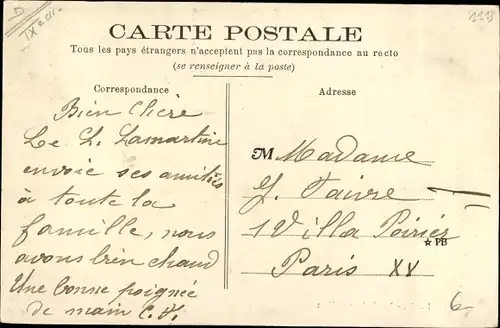 1113
CARTE POSTALE
Tous les pays étrangers n'acceptent pas la correspondance au recto
(se renseigner à la poste)
Correspondance
Bien Chère
Le L. Lamartine
envoie ses amitiés
à toute la
famille, nous
avons bien chaud
Une bonne poignée
de main
Adresse
M Madame
Faivre
1 Villa Poirier
☆ PB
Paris XV
6